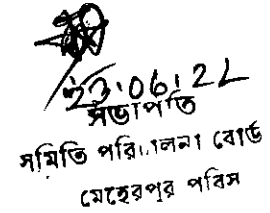 23.06.22
সভাপতি
সমিতি পরিচালনা বোর্ড
মেহেরপুর পবিস